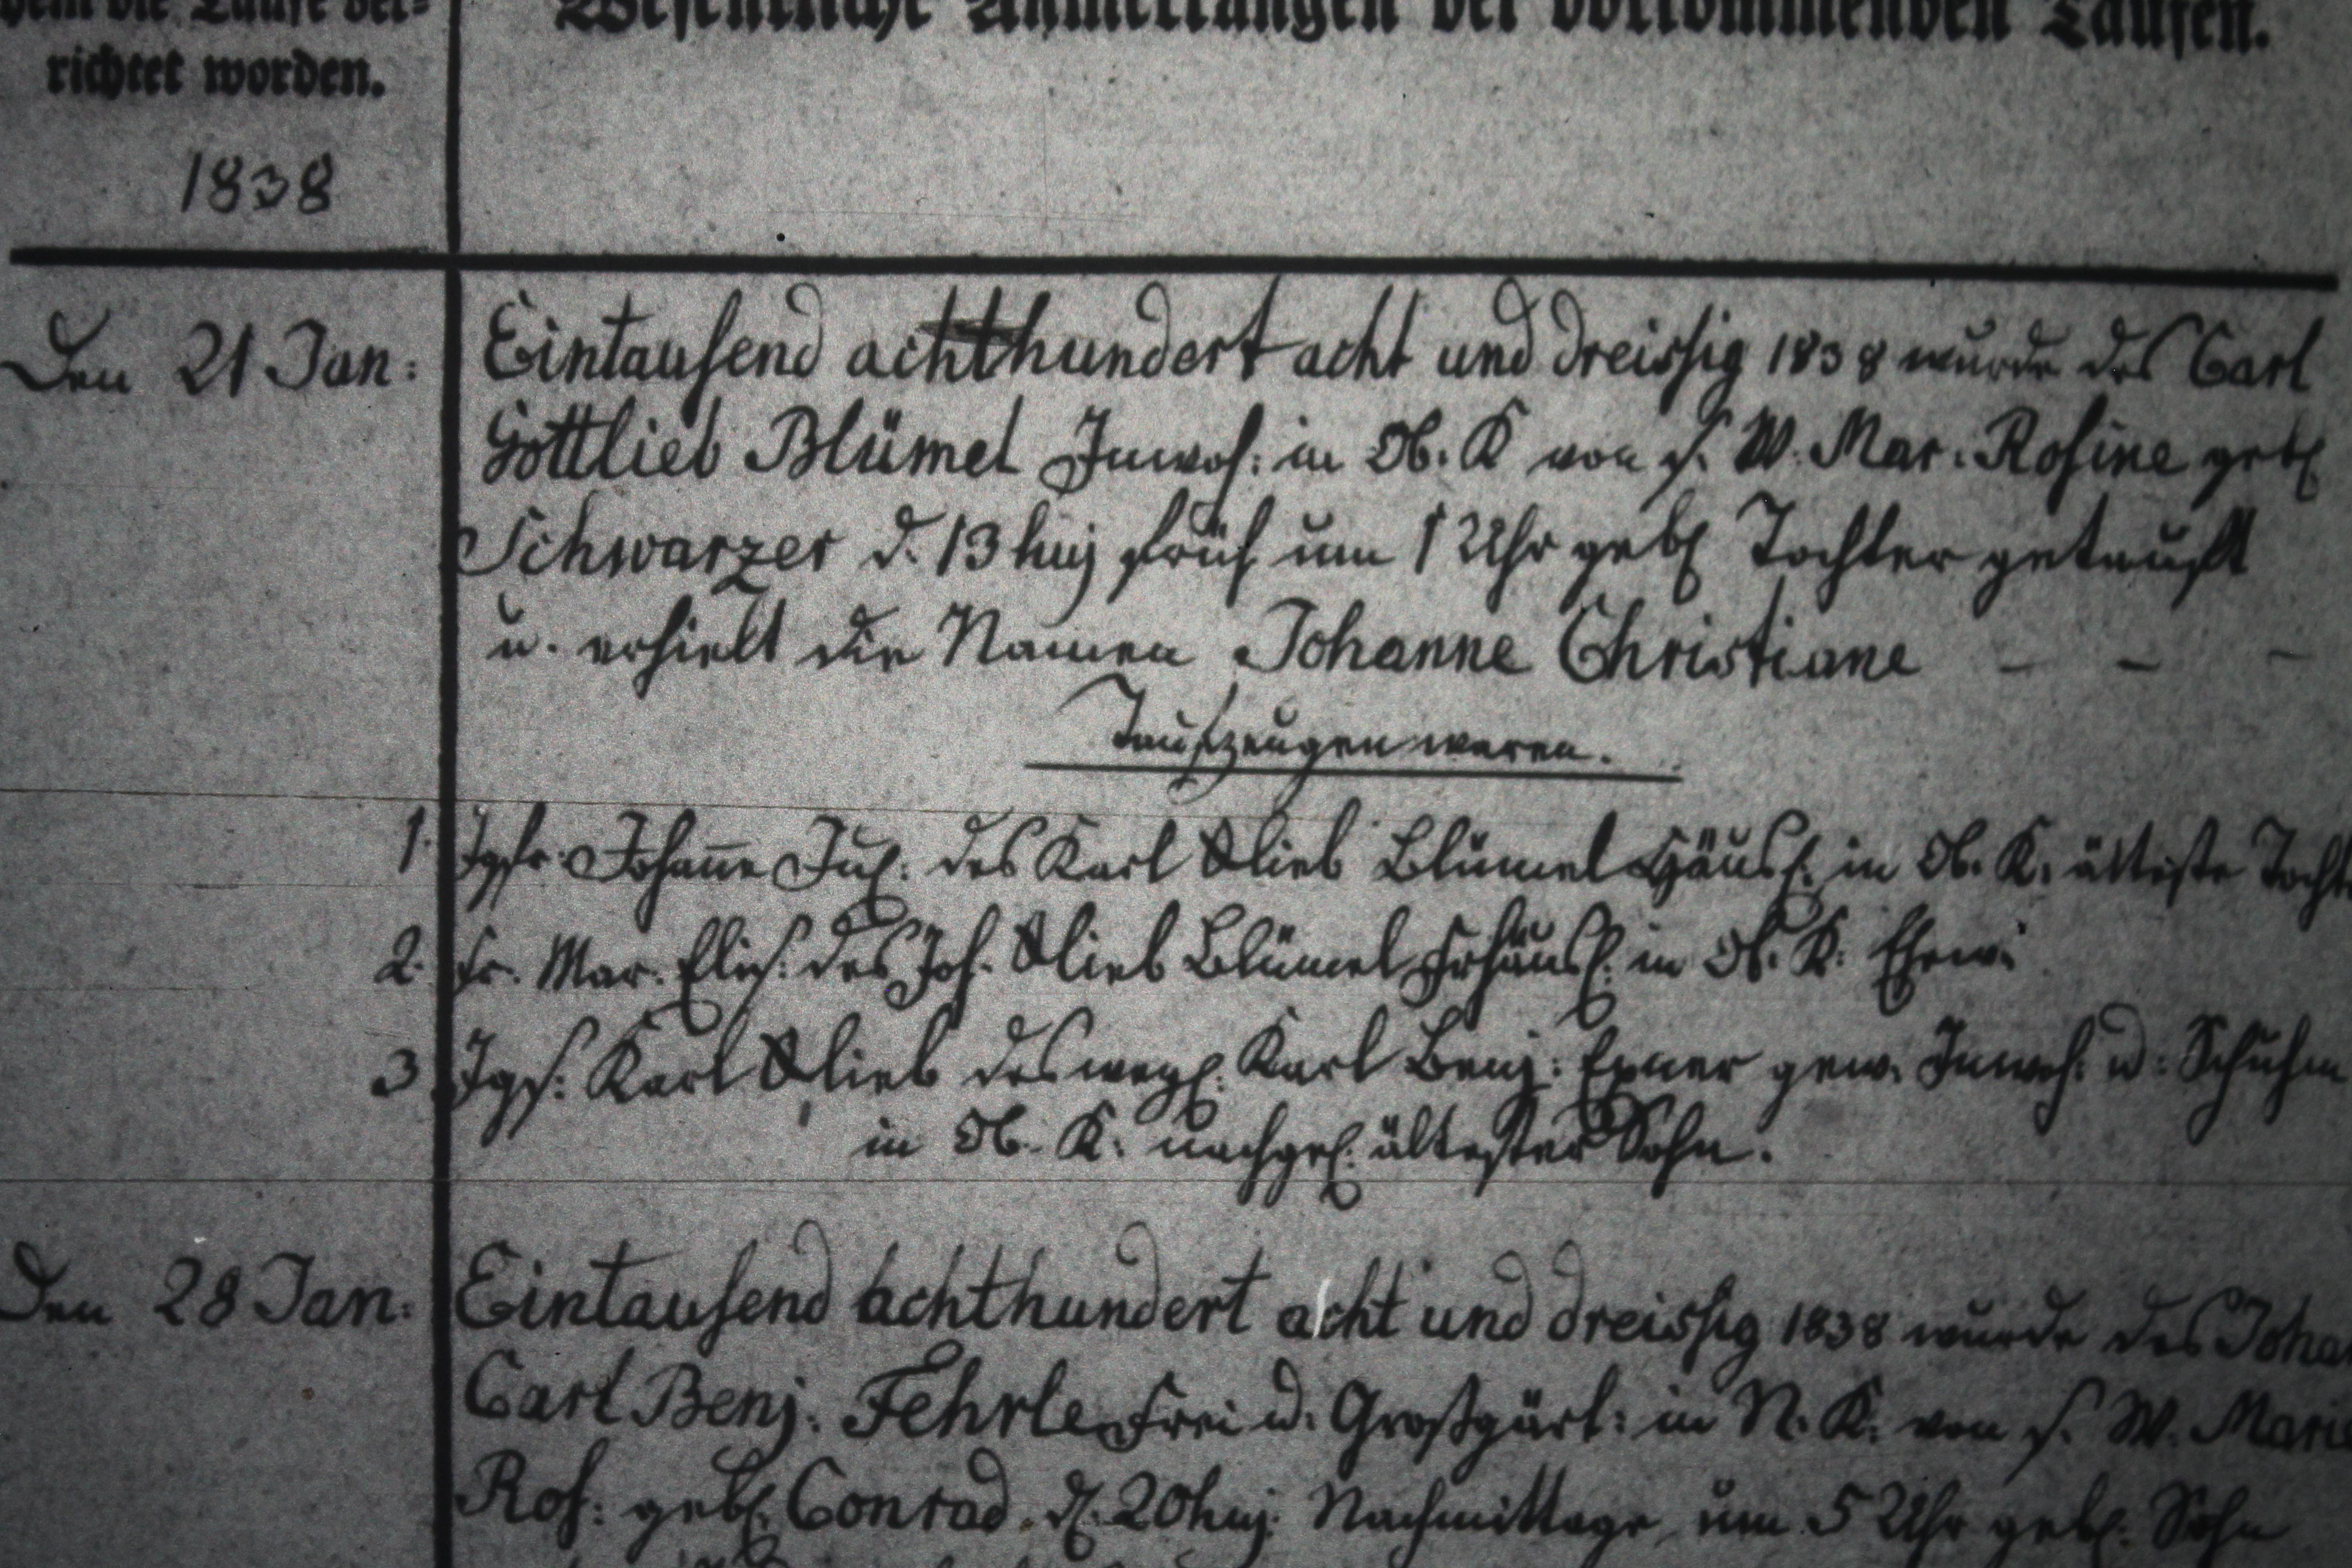 dem die Taufe ver-
richtet worden.
Wesentliche Anmerkungen der vorkommenden Taufen.
1838
Den 21 Jan: Eintausend achthundert acht und dreissig 1838 wurde des Carl
Gottlieb Blümel Inwoh: in Ob. K von s. W. Mar. Rosine geb.
Schwarzer d. 13 huj früh um 1 Uhr geb. Tochter getauft
u. erhielt die Namen Johanne Christiane - - -
Taufzeugen waren.
1. Jgfr. Johanne Jul: des Karl Glieb Blümel Häusl: in Ob. K. älteste Tocht
2. Fr. Mar. Elis: des Joh. Glieb Blümel Frhäusl: in Ob. K: Ehew:
3 Jgs: Karl Glieb des weyl: Karl Benj: Exner gew. Inwoh: u: Schuhm
in Ob. K: nachgel: ältester Sohn.
Den 28 Jan: Eintausend achthundert acht und dreissig 1838 wurde des Joha
Carl Benj: Fehrle Frei u: Großgärt: in N. K: von s. W. Marie
Ros: geb. Conrad d. 20 huj. Nachmittags um 5 Uhr geb: Sohn